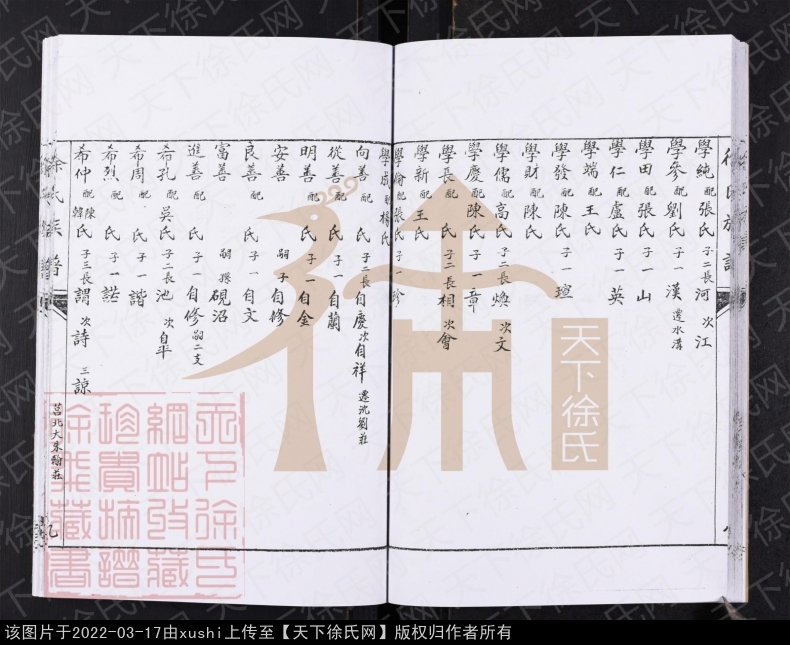 學純 配 張氏 子二 長 河 次 江
學參 配 劉氏 子一 漢 遷水溝
學田 配 張氏 子一 山
學仁 配 盧氏 子一 英
學端 配 王氏
學發 配 陳氏 子一 瑄
學財 配 陳氏
學儒 配 高氏 子二 長 煥 次 文
學慶 配 陳氏 子一 章
學長 配 氏 子二 長 相 次 會
學新 配 王氏
學倫 配 張氏 子一 珍
學成 配 楊氏
向善 配 氏 子二 長 自慶 次 自祥 遷沈劉莊
從善 配 氏 子一 自蘭
明善 配 氏 子一 自金
安善 嗣子 自修
良善 配 氏 子一 自文
富善 嗣孫 硯沼
進善 配 氏 子一 自修 嗣二支
希孔 配 吳氏 子二 長 池 次 自平
希周 配 氏 子一 諧
希烈 配 氏 子一 諾
希仲 配 陳韓氏 子三 長 謂 次 詩 三 諒
徐氏族譜
莒北大朱翰莊
九
天下徐氏
天下徐氏网
该图片于2022-03-17由xushi上传至【天下徐氏网】版权归作者所有